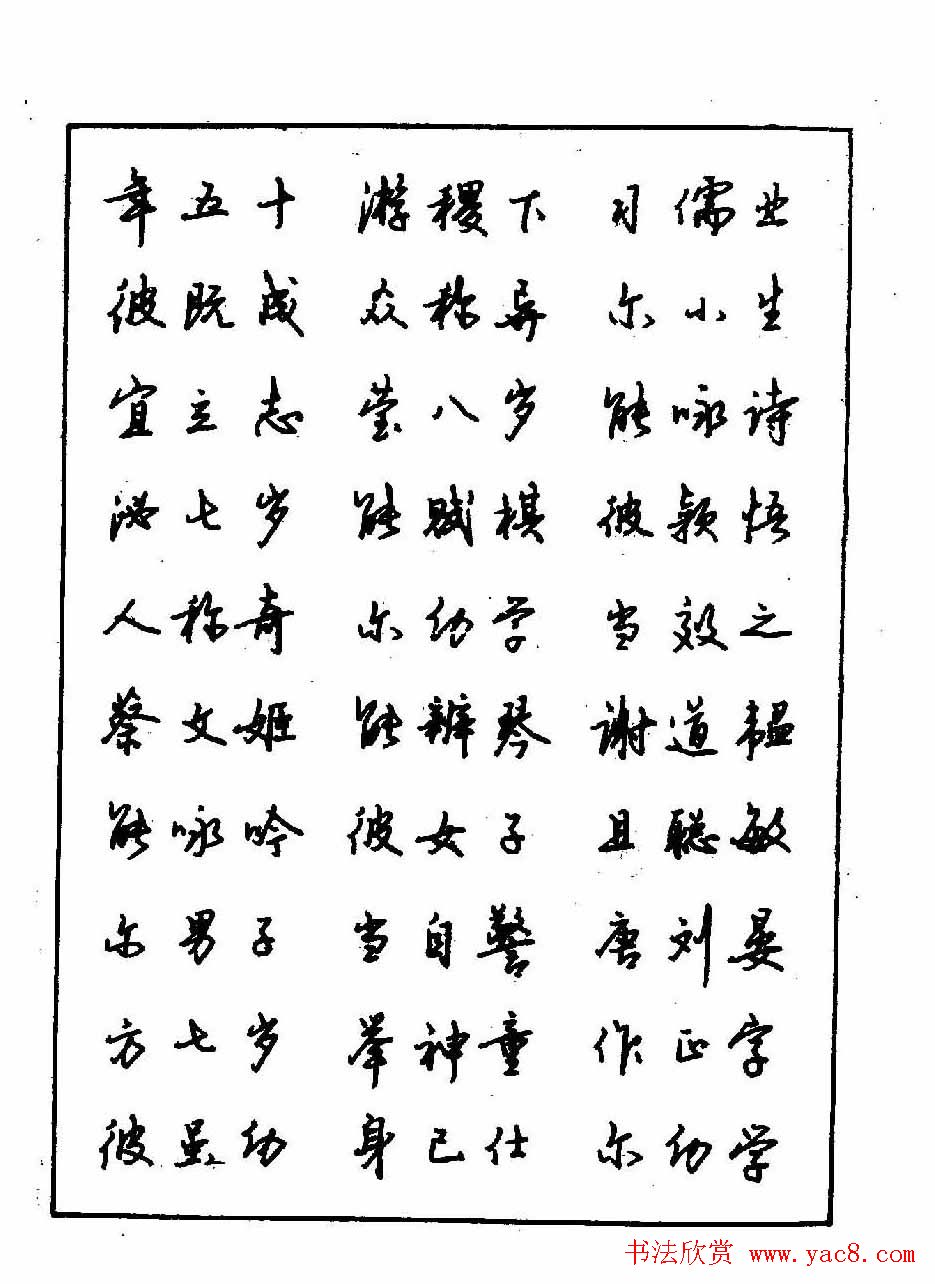 年五十 游稷下 习儒业
彼既成 众称异 尔小生
宜立志 莹八岁 能咏诗
泌七岁 能赋棋 彼颖悟
人称奇 尔幼学 当效之
蔡文姬 能辨琴 谢道韫
能咏吟 彼女子 且聪敏
尔男子 当自警 唐刘晏
方七岁 举神童 作正字
彼虽幼 身已仕 尔幼学
书法欣赏 www.yac8.com